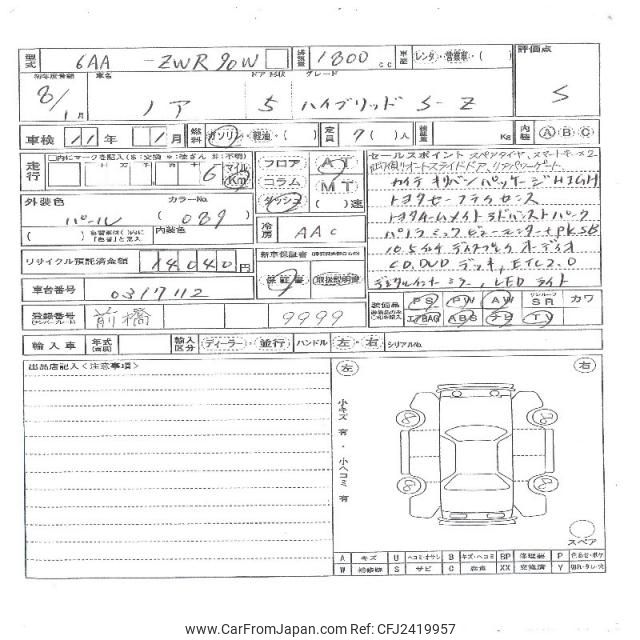 型式 6AA - ZWR90W 排気量 1800 cc 車歴 レンタ・営業車・( ) 評価点
初年度登録 車名 ドア 形状 グレード
8/1月 ノア 5 ハイブリッド S-Z S
車検 11年 1月 燃料 ガソリン・軽油・( ) 定員 7( )人 積載量 Kg 内装 A B C
走行 □内にマークを記入($:交換 *:改ざん #:不明) 6 マイル Km フロア AT
コラム MT
ダッシュ ( )速
セールスポイント スペアタイヤ、スマートキー×2
両側オートスライドドア、リアパワーゲート
カイテキリベンパッケージHIGH
トヨタセーフティセンス
トヨタチームメイト アドバンストパーク
パノラミックビューモニター+PKSB
10.5インチ ディスプレイオーディオ
CD,DVDデッキ、ETC2.0
デジタルインナーミラー、LEDライト
外装色 カラーNo.
パール (089)
( ) 色替車は( )内に「色替」と記入 内装色
冷房 AAC
リサイクル預託済金額 14040円
新車保証書
保証書 取扱説明書
車台番号 0317112
登録番号 前橋 9999
装備品 PS PW AW SR カワ
エアBAG ABS ナビ TV
輸入車 年式 輸入区分 ディーラー・並行 ハンドル 左・右 シリアルNo.
出品店記入〈注意事項〉
左 右
小キズ有・小ヘコミ有
8 8
8 8
スペア
A キズ U ヘコミ・オサレ B キズ・ヘコミ BP 修理跡 P 色あせ・ボケ
W 補修跡 S サビ C 腐食 XX 交換済 Y 切れ・タレ・穴
CarFromJapan.com @CarFromJapan ID: CFJ2419957